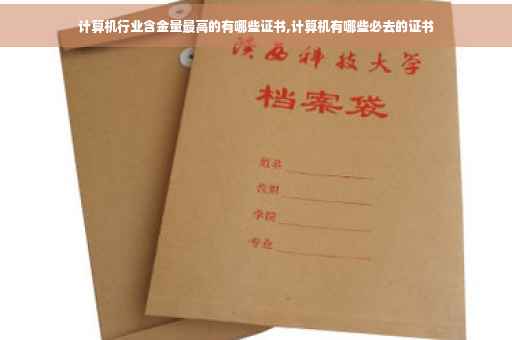 计算机行业含金量最高的有哪些证书,计算机有哪些必去的证书
陕西科技大学
档案袋
姓名
学院
专业